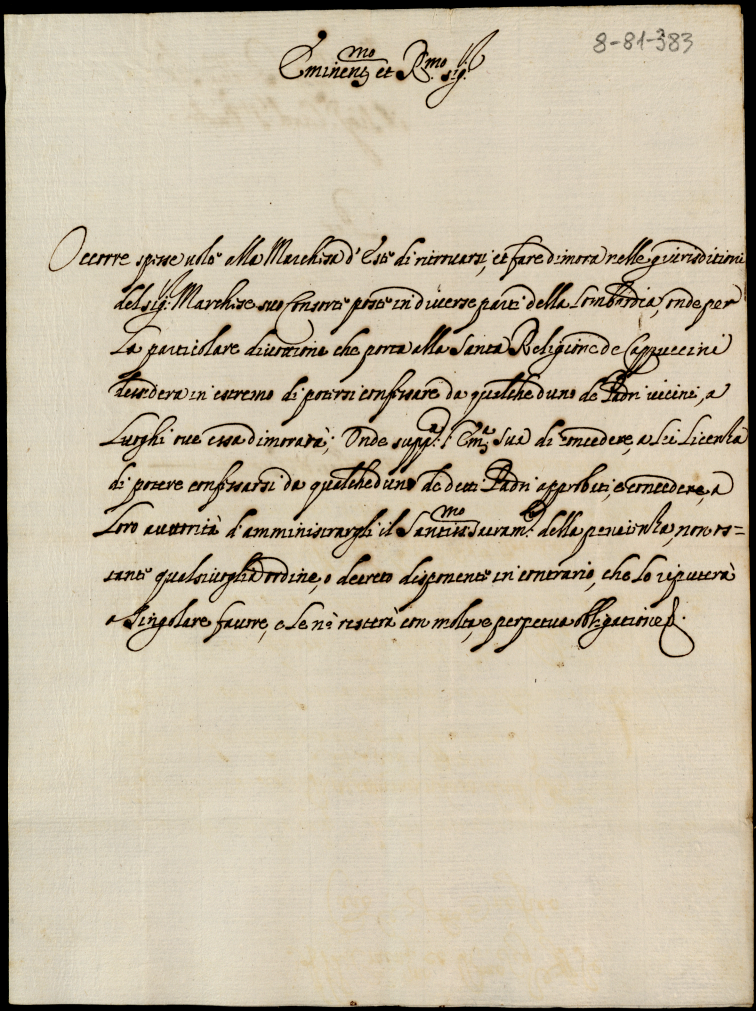 8-81-383
Eminent.mo et R.mo sig.r
Occorre spesse uolte alla Marchesa d'Este di ritrouarsi, et fare dimora nelle giurisditioni
del sig.r Marchese suo Consorte poste in diuerse parti della Lombardia, onde per
La particolare diuotione che porta alla Santa Religione de Cappuccini
desidera in estremo di potersi confessare da qualcheduno de Padri uicini, a
Luoghi oue essa dimorarà; Onde supp.a l'Em.a Sua di concedere, a Lei Licenza
di potere confessarsi da qualcheduno de detti Padri approbati, e concedere, a
Loro auttorità d'amministrargli il Santiss.mo Sacram.to della penitenza, non os=
tante qualsiuoglia ordine, o decreto disponente in contrario, che Lo riputerà
a singolare fauore, e Le n'è resterà con molta, e perpetua obligatione.